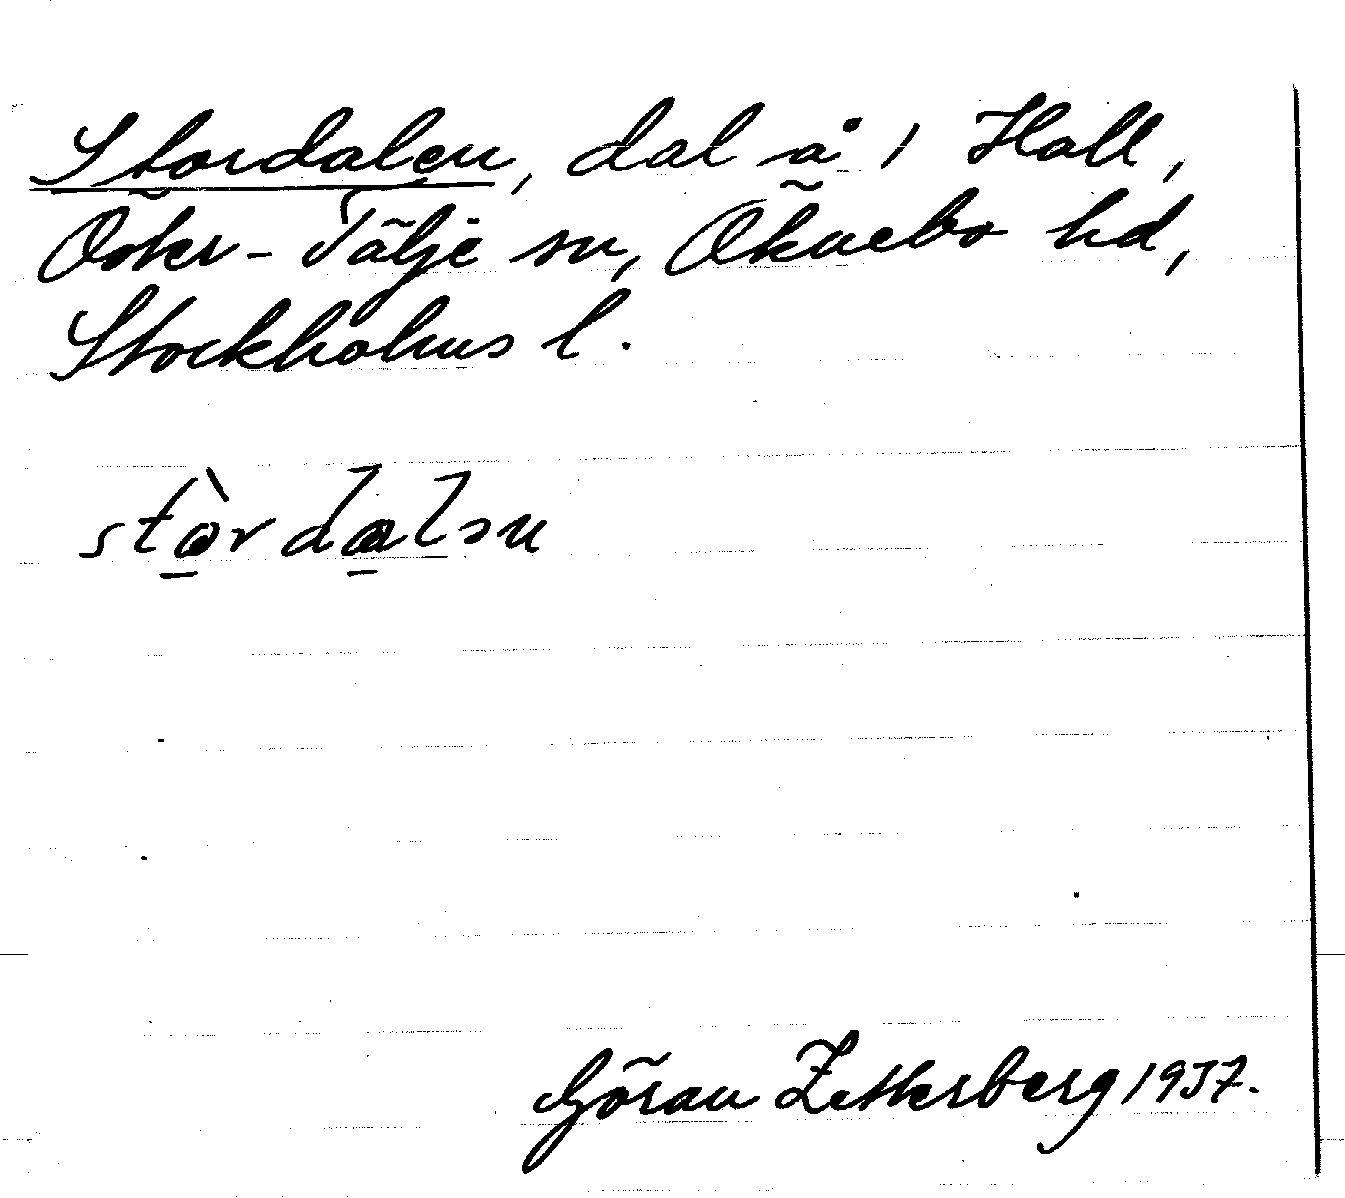 Stordalen, dal å 1 Hall,
Öster-Tälje sn, Öknebo hd,
Stockholms l.
stòrdalən
Göran Zetterberg 1937.